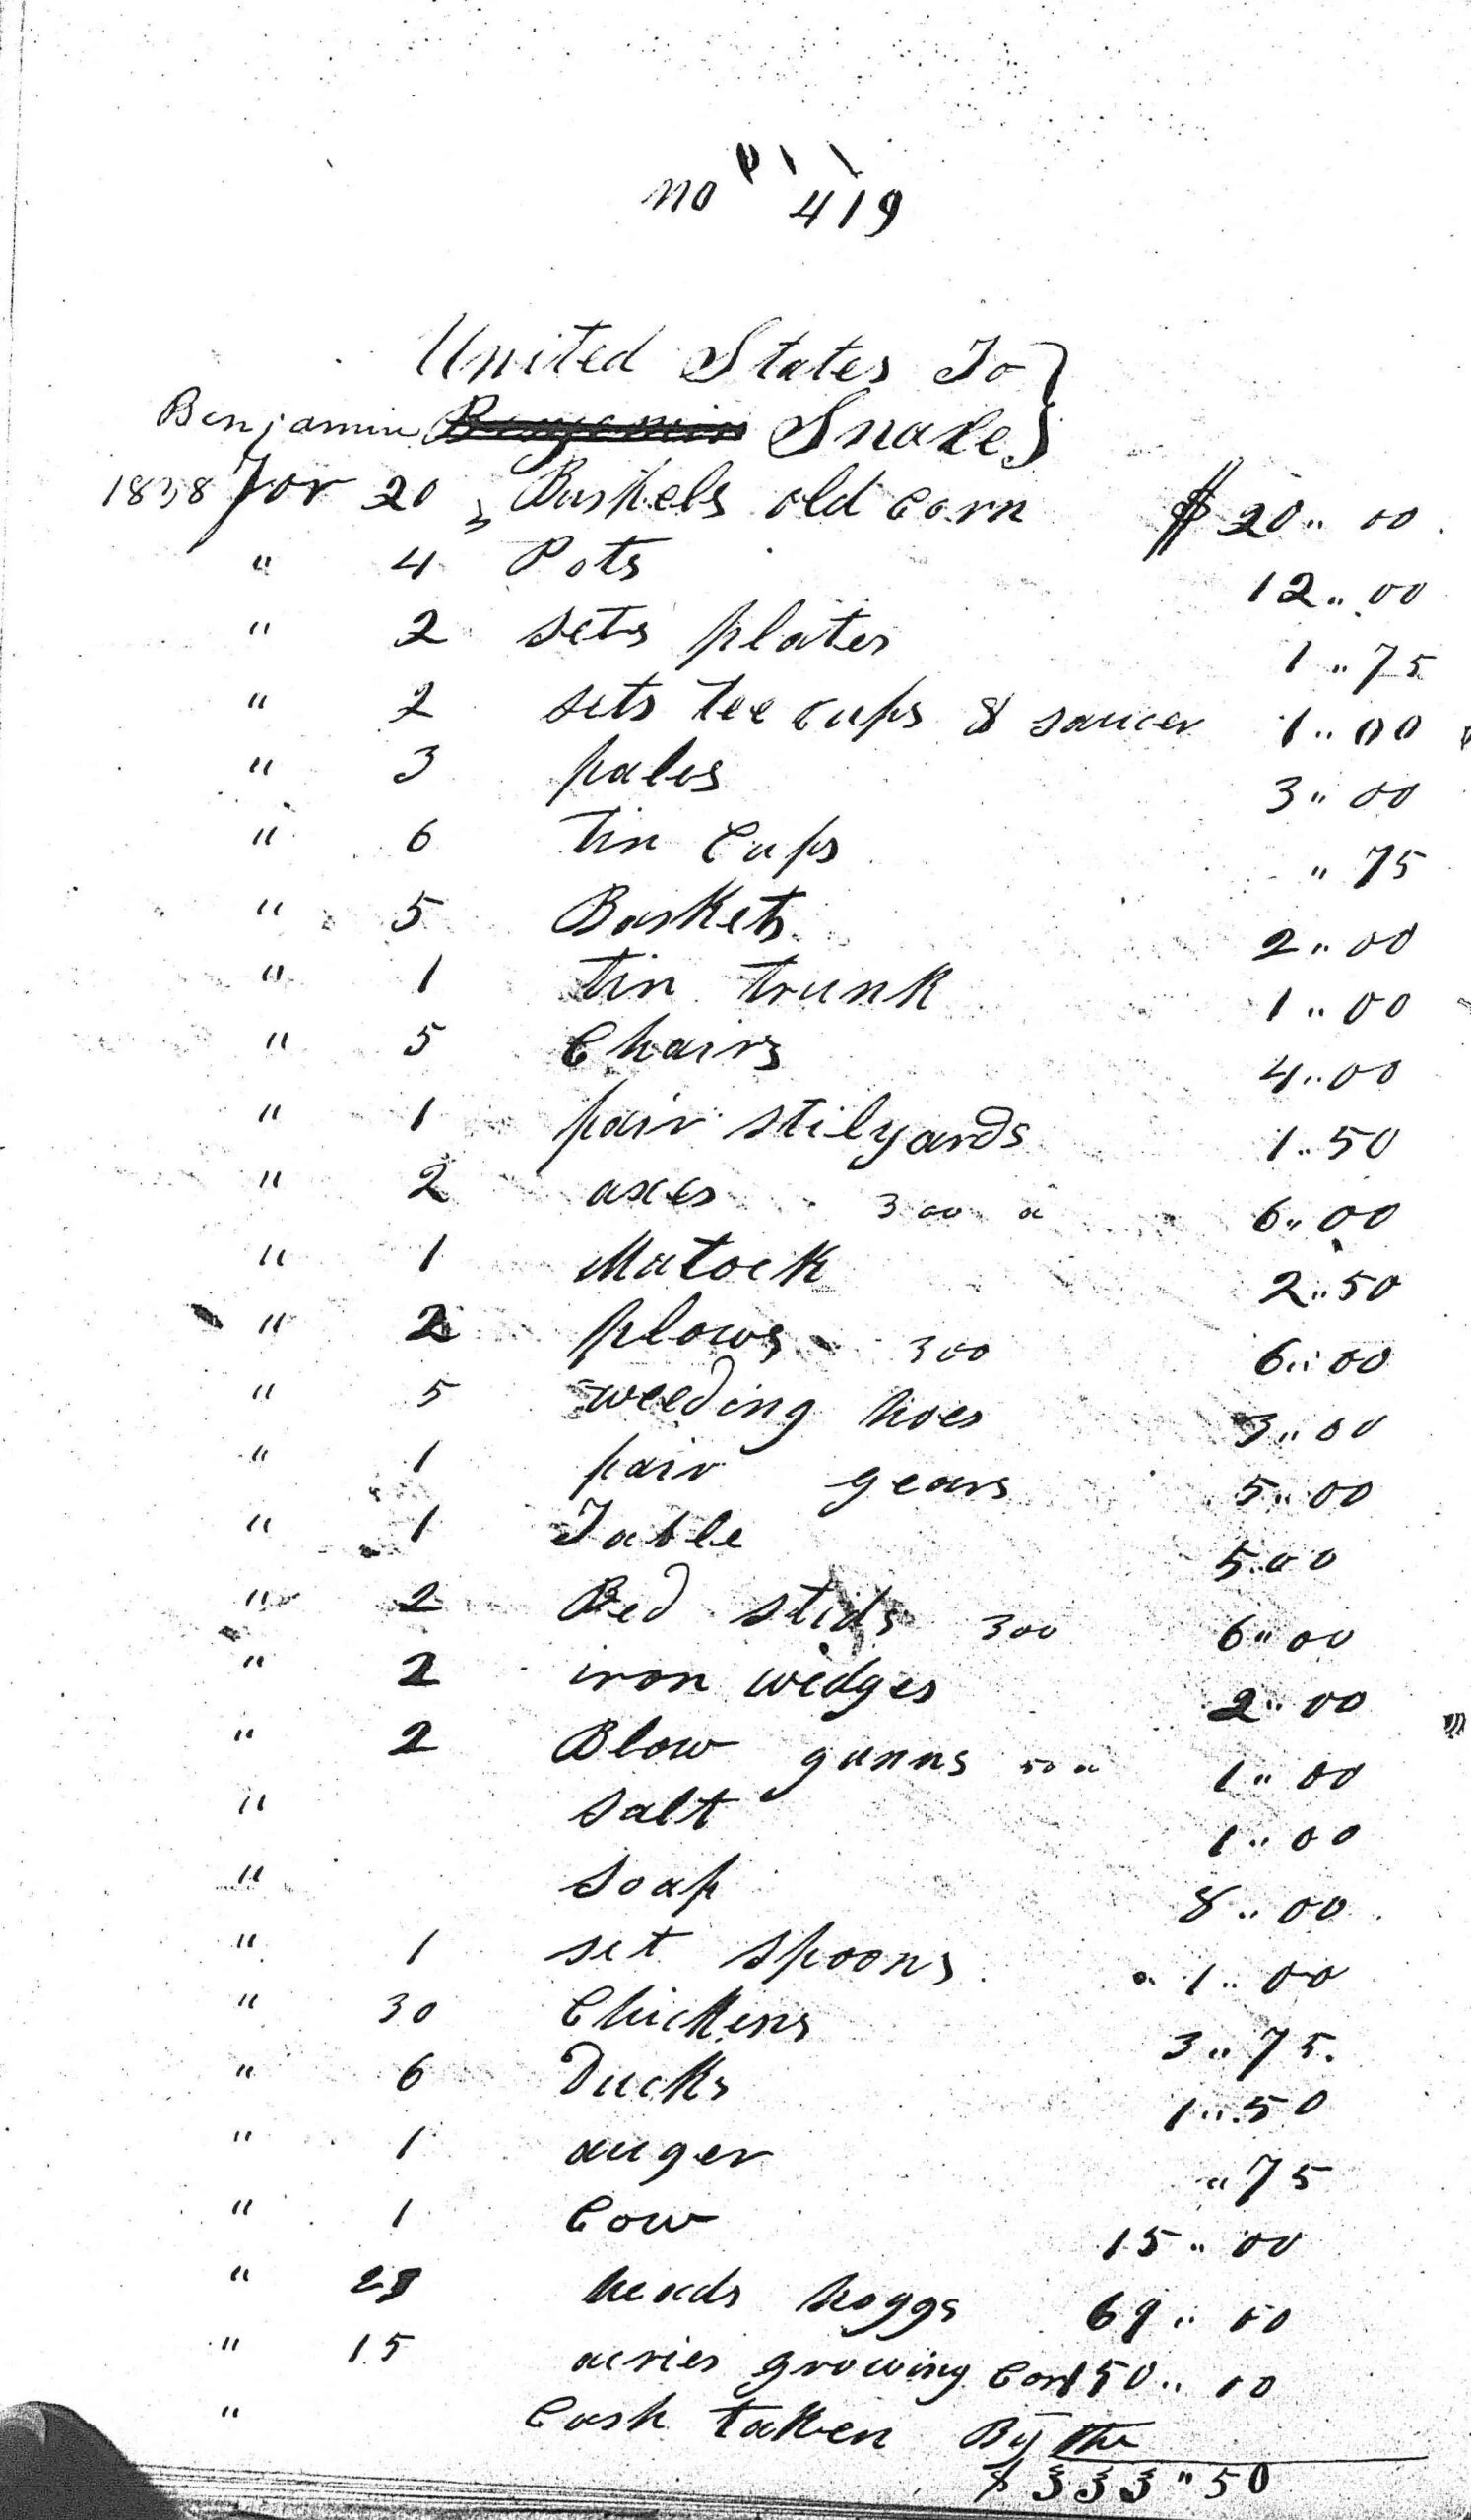 no 419
United States To }
Benjamin Benjamin Snake }
1838 For 20 Bushels old corn $ 20 " 00
" 4 Pots 12 " 00
" 2 sets plates 1 " 75
" 2 sets tee cups & saucer 1 " 00
" 3 pales 3 " 00
" 6 tin Cups " 75
" 5 Baskets 2 " 00
" 1 tin trunk 1 " 00
" 5 Chairs 4 " 00
" 1 pair stilyards 1 " 50
" 2 axes 3 00 a 6 " 00
" 1 Matock 2 " 50
" 2 plows 3 00 6 " 00
" 5 weeding hoes 3 " 00
" 1 pair gears 5 " 00
" 1 Table 5 " 00
" 2 Bed stids 3 00 6 " 00
" 2 iron wedges 2 " 00
" 2 Blow gunns 50 a 1 " 00
" salt 1 " 00
" soap 8 " 00
" 1 set spoons 1 " 00
" 30 Chickens 3 " 75
" 6 Ducks 1 " 50
" 1 auger " 75
" 1 Cow 15 " 00
" heads hoggs 69 " 00
" 15 acries growing Corn 150 " 00
" Cash taken By the
$ 333 " 50